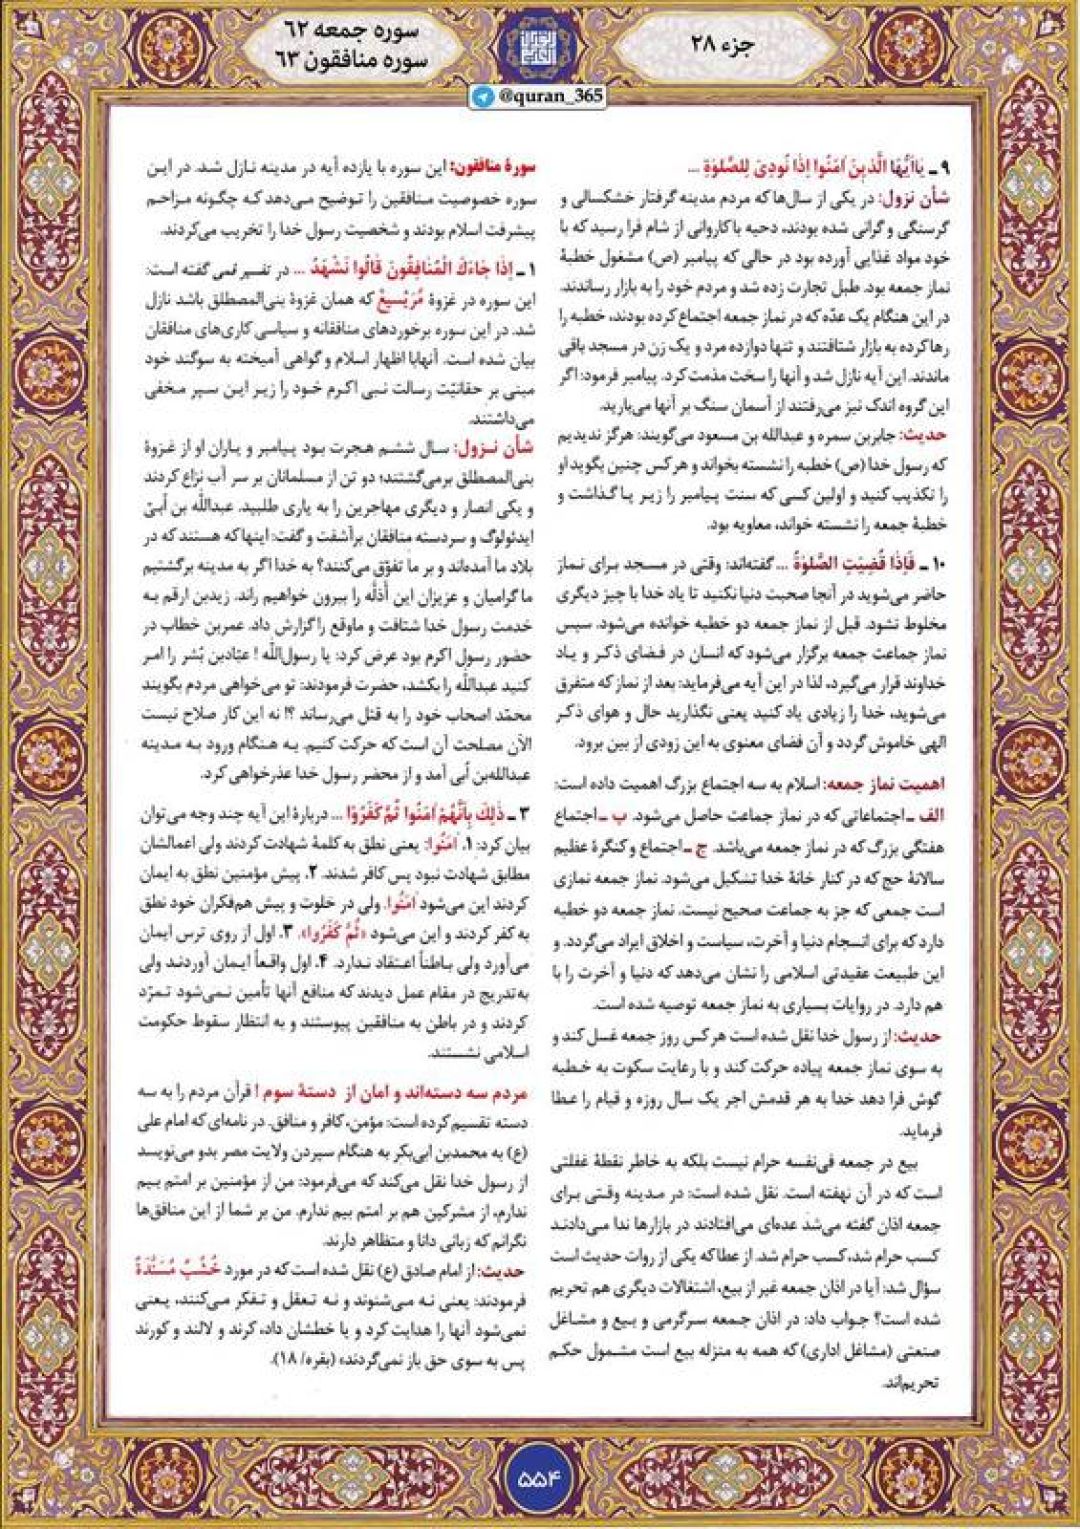 جزء ۲۸
سوره جمعه ۶۲
سوره منافقون ۶۳
@quran_365
۹ ـ یٰااَیُّهَا الَّذینَ اٰمَنُوا اِذٰا نُودِیَ لِلصَّلوٰةِ ...
شأن نزول: در یکی از سال‌ها که مردم مدینه گرفتار خشکسالی و
گرسنگی و گرانی شده بودند، دحیه با کاروانی از شام فرا رسید که با
خود مواد غذایی آورده بود در حالی که پیامبر (ص) مشغول خطبهٔ
نماز جمعه بود. طبل تجارت زده شد و مردم خود را به بازار رساندند.
در این هنگام یک عدّه که در نماز جمعه اجتماع کرده بودند، خطبه را
رها کرده به بازار شتافتند و تنها دوازده مرد و یک زن در مسجد باقی
ماندند. این آیه نازل شد و آنها را سخت مذمت کرد. پیامبر فرمود: اگر
این گروه اندک نیز می‌رفتند از آسمان سنگ بر آنها می‌بارید.
حدیث: جابربن سمره و عبدالله بن مسعود می‌گویند: هرگز ندیدیم
که رسول خدا (ص) خطبه را نشسته بخواند و هر کس چنین بگوید او
را تکذیب کنید و اولین کسی که سنت پیامبر را زیر پا گذاشت و
خطبهٔ جمعه را نشسته خواند، معاویه بود.
۱۰ ـ فَاِذٰا قُضِیَتِ الصَّلوٰةُ ... گفته‌اند: وقتی در مسجد برای نماز
حاضر می‌شوید در آنجا صحبت دنیا نکنید تا یاد خدا با چیز دیگری
مخلوط نشود. قبل از نماز جمعه دو خطبه خوانده می‌شود. سپس
نماز جماعت جمعه برگزار می‌شود که انسان در فضای ذکر و یاد
خداوند قرار می‌گیرد، لذا در این آیه می‌فرماید: بعد از نماز که متفرق
می‌شوید، خدا را زیادی یاد کنید یعنی نگذارید حال و هوای ذکر
الهی خاموش گردد و آن فضای معنوی به این زودی از بین برود.
اهمیت نماز جمعه: اسلام به سه اجتماع بزرگ اهمیت داده است:
الف ـ اجتماعاتی که در نماز جماعت حاصل می‌شود. ب ـ اجتماع
هفتگی بزرگ که در نماز جمعه می‌باشد. ج ـ اجتماع و کنگرهٔ عظیم
سالانهٔ حج که در کنار خانهٔ خدا تشکیل می‌شود. نماز جمعه نمازی
است جمعی که جز به جماعت صحیح نیست. نماز جمعه دو خطبه
دارد که برای انسجام دنیا و آخرت، سیاست و اخلاق ایراد می‌گردد. و
این طبیعت عقیدتی اسلامی را نشان می‌دهد که دنیا و آخرت را با
هم دارد. در روایات بسیاری به نماز جمعه توصیه شده است.
حدیث: از رسول خدا نقل شده است هر کس روز جمعه غسل کند و
به سوی نماز جمعه پیاده حرکت کند و با رعایت سکوت به خطبه
گوش فرا دهد خدا به هر قدمش اجر یک سال روزه و قیام را عطا
فرماید.
بیع در جمعه فی‌نفسه حرام نیست بلکه به خاطر نقطهٔ غفلتی
است که در آن نهفته است. نقل شده است: در مدینه وقتی برای
جمعه اذان گفته می‌شد عده‌ای می‌افتادند در بازارها ندا می‌دادند
کسب حرام شد، کسب حرام شد. از عطا که یکی از روات حدیث است
سؤال شد: آیا در اذان جمعه غیر از بیع، اشتغالات دیگری هم تحریم
شده است؟ جواب داد: در اذان جمعه سرگرمی و بیع و مشاغل
صنعتی (مشاغل اداری) که همه به منزله بیع است مشمول حکم
تحریم‌اند.
سورهٔ منافقون: این سوره با یازده آیه در مدینه نازل شد. در این
سوره خصوصیت منافقین را توضیح می‌دهد که چگونه مزاحم
پیشرفت اسلام بودند و شخصیت رسول خدا را تخریب می‌کردند.
۱ ـ اِذٰا جٰاءَکَ الْمُنٰافِقُونَ قٰالُوا نَشْهَدُ ... در تفسیر قمی گفته است:
این سوره در غزوهٔ مُرَیْسیعْ که همان غزوهٔ بنی‌المصطلق باشد نازل
شد. در این سوره برخوردهای منافقانه و سیاسی کاری‌های منافقان
بیان شده است. آنها با اظهار اسلام و گواهی آمیخته به سوگند خود
مبنی بر حقانیّت رسالت نبی اکرم خود را زیر این سپر مخفی
می‌داشتند.
شأن نزول: سال ششم هجرت بود پیامبر و یاران او از غزوهٔ
بنی‌المصطلق برمی‌گشتند؛ دو تن از مسلمانان بر سر آب نزاع کردند
و یکی انصار و دیگری مهاجرین را به یاری طلبید. عبدالله بن أبیّ
ایدئولوگ و سردسته منافقان برآشفت و گفت: اینها که هستند که در
بلاد ما آمده‌اند و بر ما تفوّق می‌کنند؟ به خدا اگر به مدینه برگشتیم
ما گرامیان و عزیزان این أذلّه را بیرون خواهیم راند. زیدبن ارقم به
خدمت رسول خدا شتافت و ماوقع را گزارش داد. عمربن خطاب در
حضور رسول اکرم بود عرض کرد: یا رسول‌الله ! عبّادبن بُشر را امر
کنید عبدالله را بکشد، حضرت فرمودند: تو می‌خواهی مردم بگویند
محمّد اصحاب خود را به قتل می‌رساند ؟! نه این کار صلاح نیست
الآن مصلحت آن است که حرکت کنیم. به هنگام ورود به مدینه
عبدالله‌بن أبی آمد و از محضر رسول خدا عذرخواهی کرد.
۳ ـ ذٰلِکَ بِاَنَّهُمْ اٰمَنُوا ثُمَّ کَفَرُوا ... دربارهٔ این آیه چند وجه می‌توان
بیان کرد: ۱. اٰمَنُوا: یعنی نطق به کلمهٔ شهادت کردند ولی اعمالشان
مطابق شهادت نبود پس کافر شدند. ۲. پیش مؤمنین نطق به ایمان
کردند این می‌شود اٰمَنُوا. ولی در خلوت و پیش هم‌فکران خود نطق
به کفر کردند و این می‌شود «ثُمَّ کَفَرُوا». ۳. اول از روی ترس ایمان
می‌آورد ولی باطناً اعتقاد ندارد. ۴. اول واقعاً ایمان آوردند ولی
به‌تدریج در مقام عمل دیدند که منافع آنها تأمین نمی‌شود تمرّد
کردند و در باطن به منافقین پیوستند و به انتظار سقوط حکومت
اسلامی نشستند.
مردم سه دسته‌اند و امان از دستهٔ سوم ! قرآن مردم را به سه
دسته تقسیم کرده است: مؤمن، کافر و منافق. در نامه‌ای که امام علی
(ع) به محمدبن ابی‌بکر به هنگام سپردن ولایت مصر بدو می‌نویسد
از رسول خدا نقل می‌کند که می‌فرمود: من از مؤمنین بر امتم بیم
ندارم، از مشرکین هم بر امتم بیم ندارم. من بر شما از این منافق‌ها
نگرانم که زبانی دانا و متظاهر دارند.
حدیث: از امام صادق (ع) نقل شده است که در مورد خُشُبٌ مُسَنَّدَةٌ
فرمودند: یعنی نه می‌شنوند و نه تعقل و تفکر می‌کنند، یعنی
نمی‌شود آنها را هدایت کرد و یا خطشان داد، کرند و لالند و کورند
پس به سوی حق باز نمی‌گردند» (بقره/ ۱۸).
۵۵۴